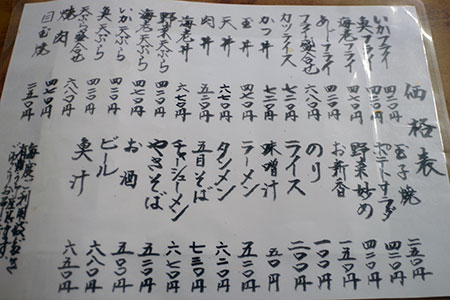 価格表
いかフライ 四二〇円
魚フライ 四二〇円
海老フライ 四七〇円
あじフライ 四二〇円
フライ盛合せ 六八〇円
カツライス 七二〇円
かつ丼 七二〇円
玉子丼 四七〇円
天丼 六七〇円
肉丼 五二〇円
海老丼 六七〇円
野菜天ぷら 四二〇円
海老天ぷら 四七〇円
いか天ぷら 四二〇円
魚天ぷら 四二〇円
天ぷら盛合せ 六八〇円
焼肉 四七〇円
目玉焼 二五〇円
玉子焼 二五〇円
ポテトサラダ 四二〇円
野菜炒め 四二〇円
お新香 一五〇円
のり 一〇〇円
ライス 二〇〇円
味噌汁 五〇円
ラーメン 五〇〇円
タンメン 六二〇円
五目そば 七三〇円
チャーシューメン 六七〇円
やきそば 五二〇円
お酒 五〇円
ビール 六八〇円
魚汁 六五〇円
毎度ご利用
ありがとうございます